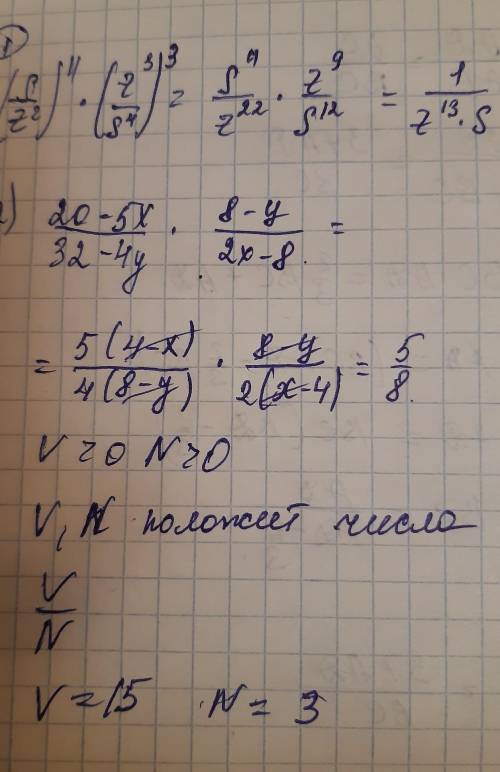 1
(s/z²)⁴ · (z³/s⁴)³ = s⁴/z²² · z⁹/s¹² = 1/(z¹³ · s)
2) (20-5x)/(32-4y) · (8-y)/(2x-8) =
= 5(4-x)/4(8-y) · (8-y)/2(x-4) = 5/8
V>0 N>0
V, N положит числа
V/N
V=15 N = 3